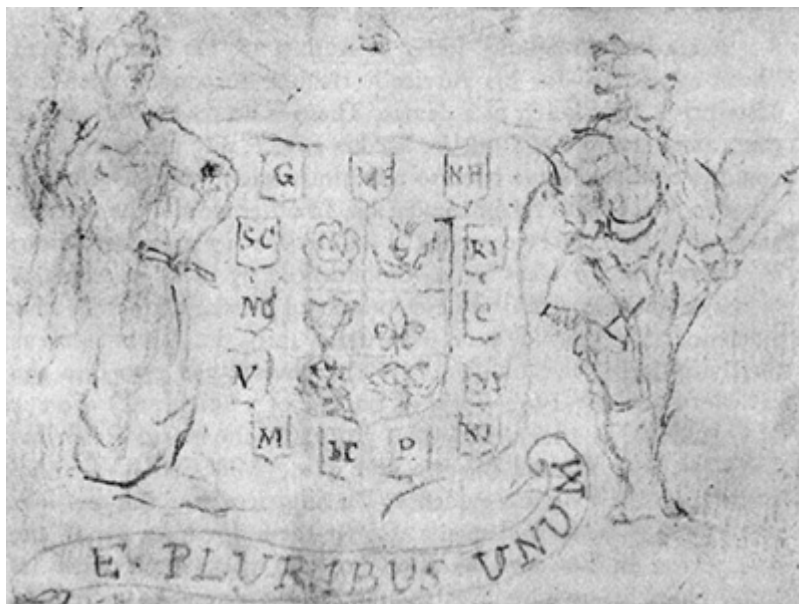 G MB NH
SC RI
NC C
V
M P NJ
E. PLURIBUS UNUM